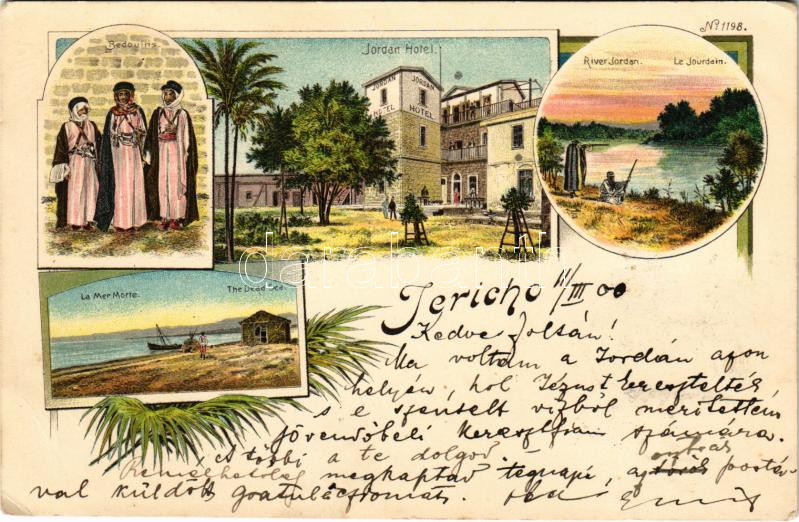 Nº 1198.
Bedouins.
Jordan Hotel.
River Jordan. Le Jourdain.
JORDAN JORDAN
HOTEL HOTEL
La Mer Morte. The Dead Sea.
darabanth.com
Jericho 11/III 00
Kedves Zoltán!
Ma voltam a Jordán azon
helyén, hol Jézust keresztelték
s e szentelt vizből merítettem
jövendőbeli keresztfiam számára.
A többi a te dolgod.
Remélhetőleg megkaptad tegnapi, osztrák
az postá-
val küldött gratulácziomat.